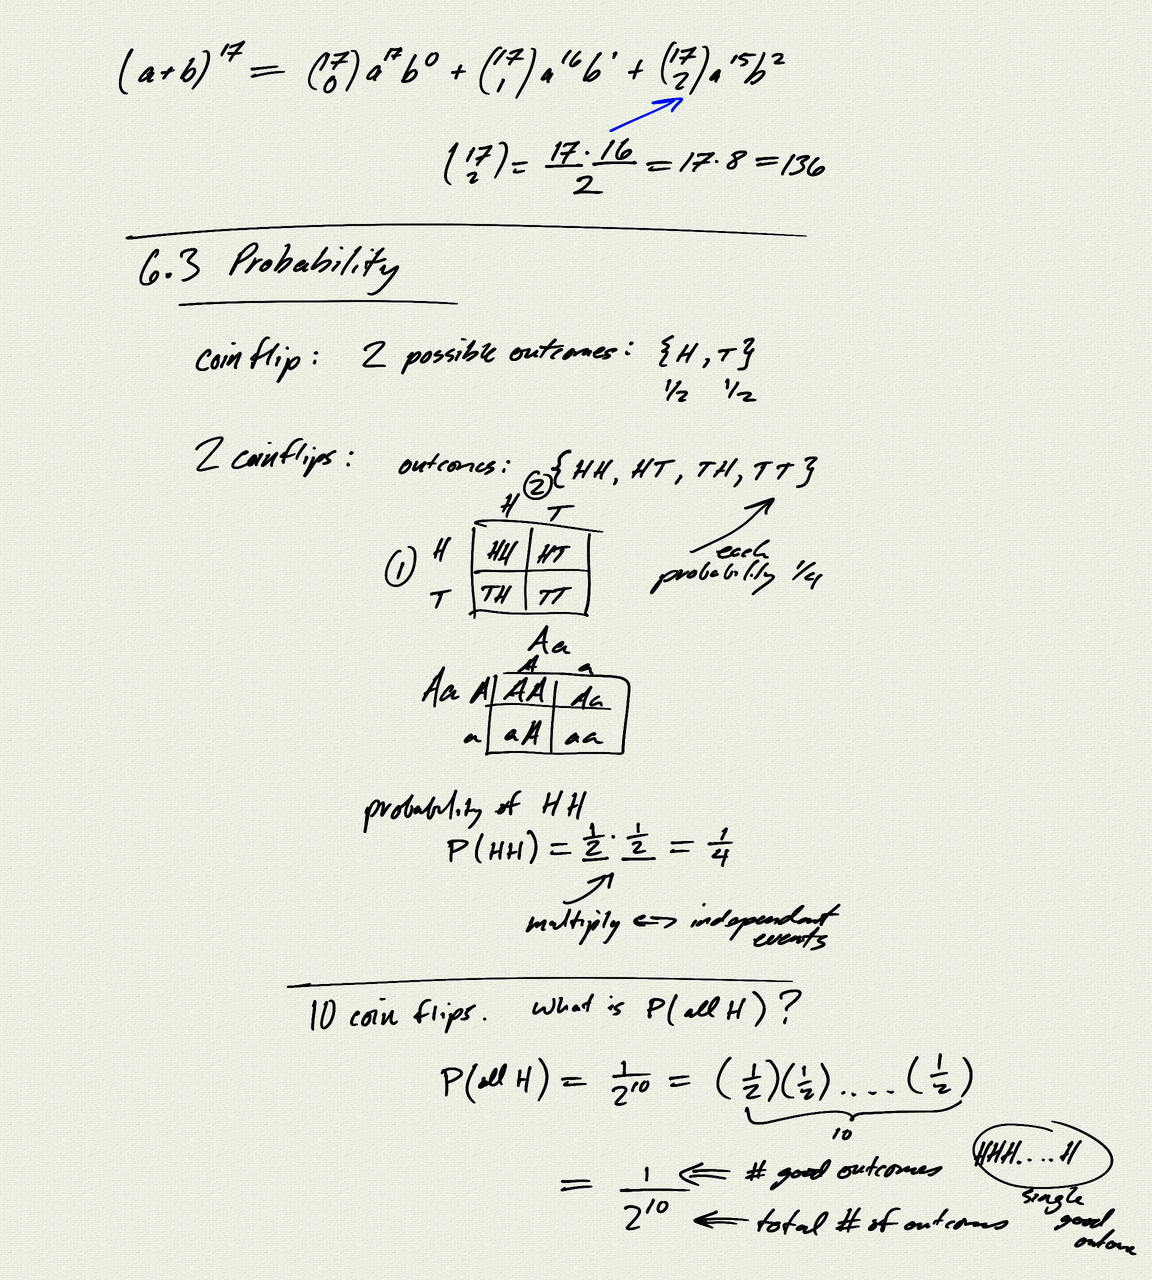 (a+b)^17 = (17 0) a^17 b^0 + (17 1) a^16 b^1 + (17 2) a^15 b^2
(17 2) = 17·16/2 = 17·8 = 136
6.3 Probability
coin flip: 2 possible outcomes: {H, T}
1/2 1/2
2 coinflips: outcomes: {HH, HT, TH, TT}
②
H T
① H HH HT
T TH TT
each
probability 1/4
Aa
A a
Aa A AA Aa
a aA aa
probability of HH
P(HH) = 1/2 · 1/2 = 1/4
multiply <=> independent
events
10 coin flips. What is P(all H)?
P(all H) = 1/2^10 = (1/2)(1/2).....(1/2)
10
= 1/2^10 <= # good outcomes HHH....H
<= total # of outcomes
single
good
outcome